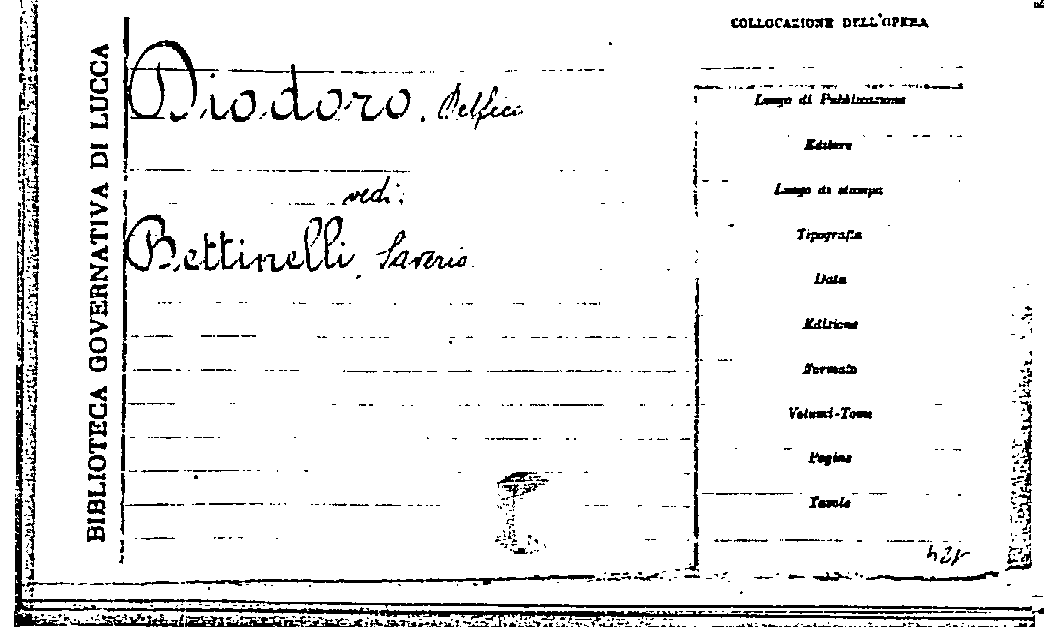 BIBLIOTECA GOVERNATIVA DI LUCCA
Diodoro, Delfico
vedi:
Bettinelli, Saverio
COLLOCAZIONE DELL'OPERA
Luogo di Pubblicazione
Editore
Luogo di stampa
Tipografia
Data
Edizione
Formato
Volumi-Tomo
Pagine
Tavole